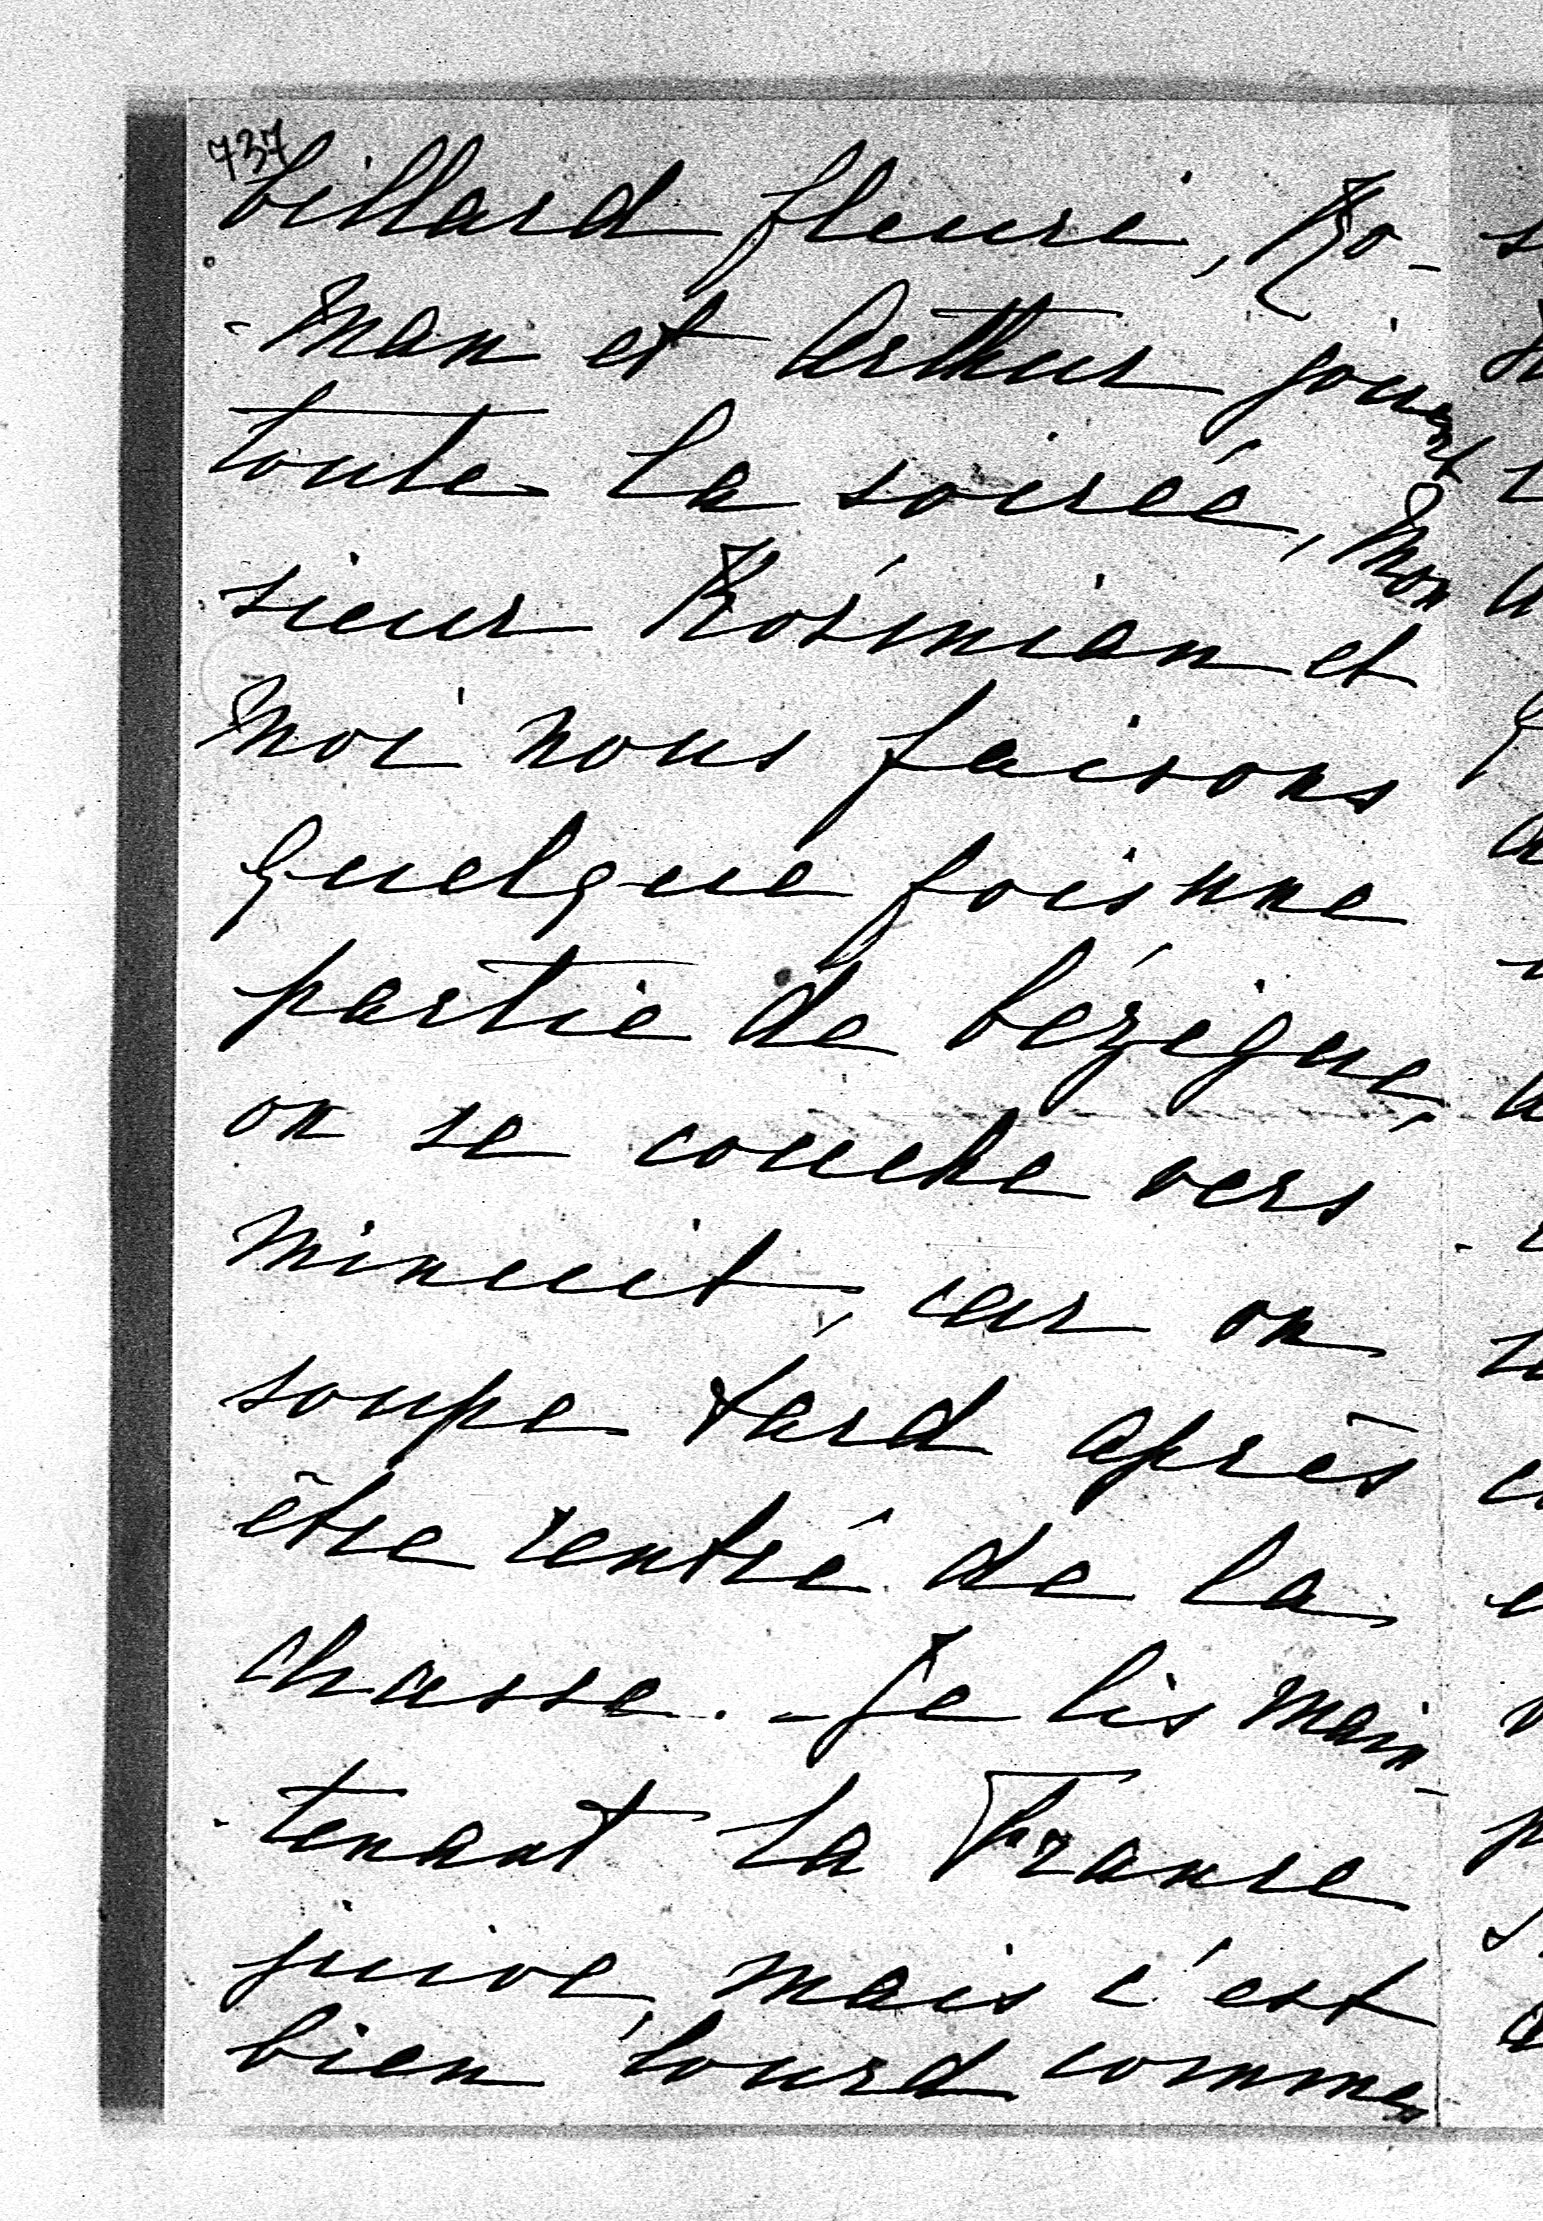 737
billard fleuri, Ro-
-man et Arthur jouent
toute la soirée, Mon
sieur Kosmian et
moi nous faisons
quelque fois une
partie de bézigue,
on se couche vers
minuit, car on
soupe tard après
être rentré de la
chasse. - Je lis main-
-tenant la France
juive, mais c'est
bien lourd comme